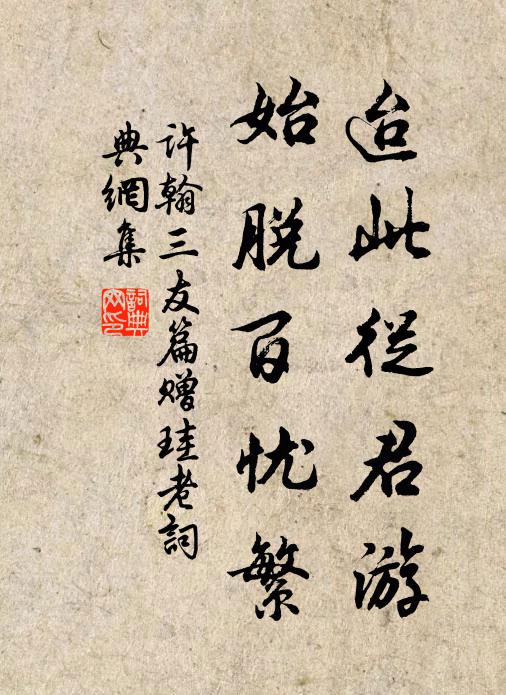 迨此從君游
始脱百忧繁
許翰三友篇赠珪老詞
典網集
詞典网印